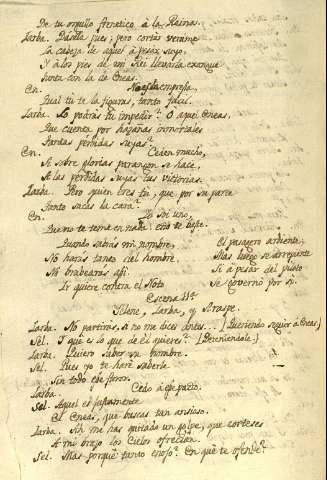 De tu orgullo frenetico à la Reina.
Iarba. Basta pues; pero cortar verasme
La cabeza de aquel à pesar suyo,
Y à los pies de mi Rei llevarla exangue
Junta con la de Eneas.
En. No es la empresa,
Qual tu te la figuras, tanto facil.
Iarba. Lo podrás tu impedir? O aquel Eneas.
Que cuenta por hazañas inmortales
Tantas perdidas suyas?
En. Ceden mucho,
Si sobre glorias parangon se hace,
A las perdidas suyas tus victorias.
Iarba. Pero quien eres tu, que por su parte
Tanto sacas la cara?
En. Yo soi uno,
Que no te teme en nada: esto te baste.
Quando sabrás mi nombre,
No harás tanto del hombre,
No bravearás asi.
Si quiere contra el Noto
El pasagero ardiente,
Mas luego se arrepiente
Si à pesar del piloto
Se governó por si.
Escena 11ª
Selene, Iarba, y Araspe.
Iarba. No partirá, si no me dices antes... (Queriendo seguir à Eneas)
Sel. Y que es lo que de el quieres? (Deteniendole.)
Iarba. Quiero saber su nombre.
Sel. Pues yo te haré saberle
Sin todo ese furor.
Iarba. Cedo à ese pacto.
Sel. Aquel es justamente
El Eneas, que buscas tan ansioso.
Iarba. Ah me has quitado un golpe, que corteses
A mi brazo los Cielos ofrecian.
Sel. Mas porqué tanto enojo? En qué te ofende?